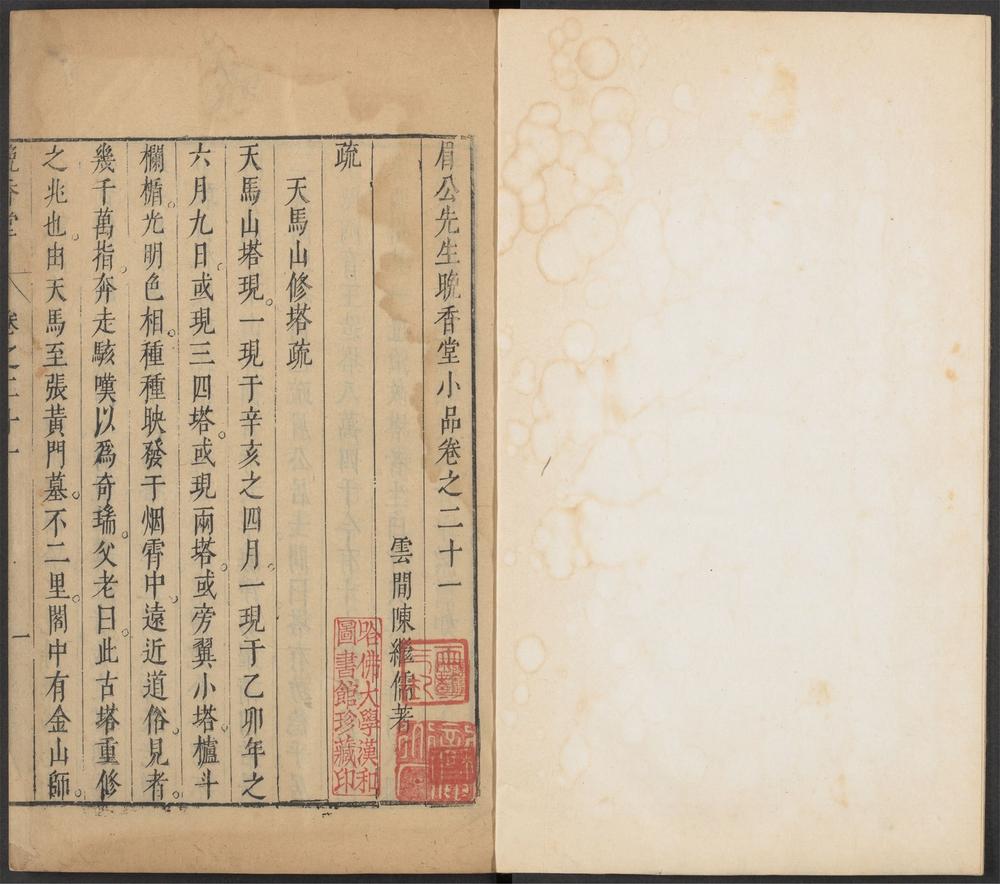 眉公先生晚香堂小品卷之二十一
雲間陳繼儒著
疏
天馬山修塔疏
天馬山塔現。一現于辛亥之四月。一現于乙卯年之
六月九日。或現三四塔。或現兩塔。或旁翼小塔。櫨斗
欄楯。光明色相。種種映發于烟霄中。遠近道俗。見者。
幾千萬指。奔走駭嘆。以爲奇瑞。父老曰。此古塔重修
之兆也。由天馬至張黃門墓。不二里。閣中有金山師。
晚香堂
卷之二十一
一
哈佛大學漢和
圖書館珍藏印